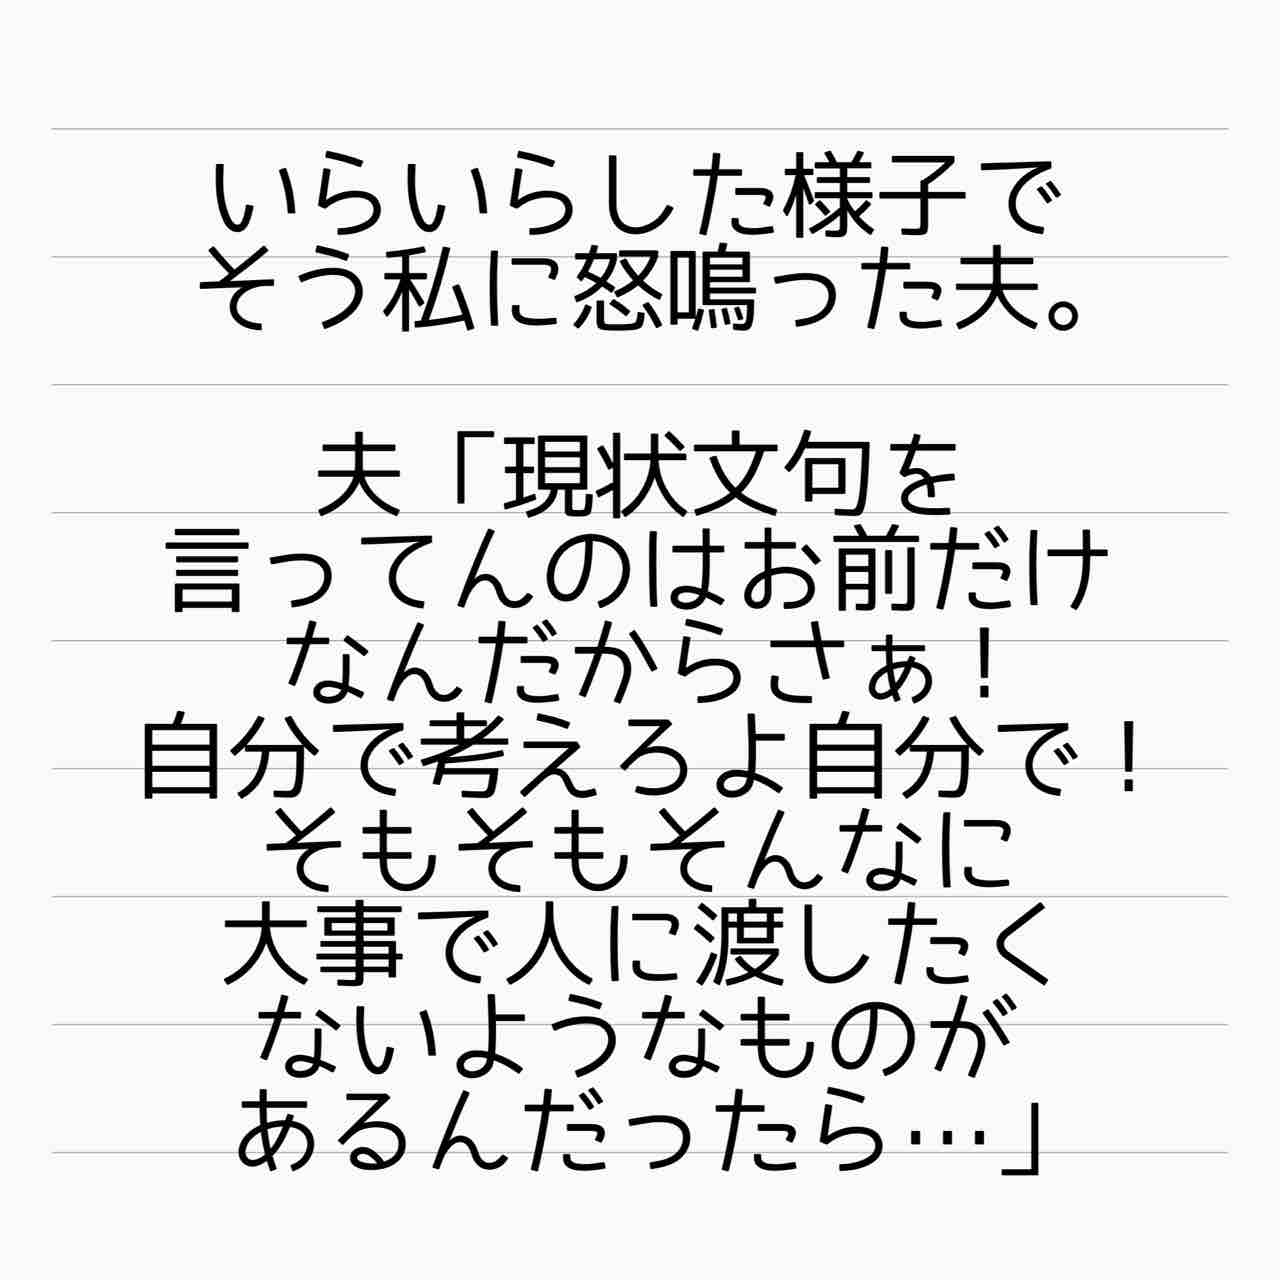 いらいらした様子で
そう私に怒鳴った夫。
夫「現状文句を
言ってんのはお前だけ
なんだからさぁ！
自分で考えろよ自分で！
そもそもそんなに
大事で人に渡したく
ないようなものが
あるんだったら…」